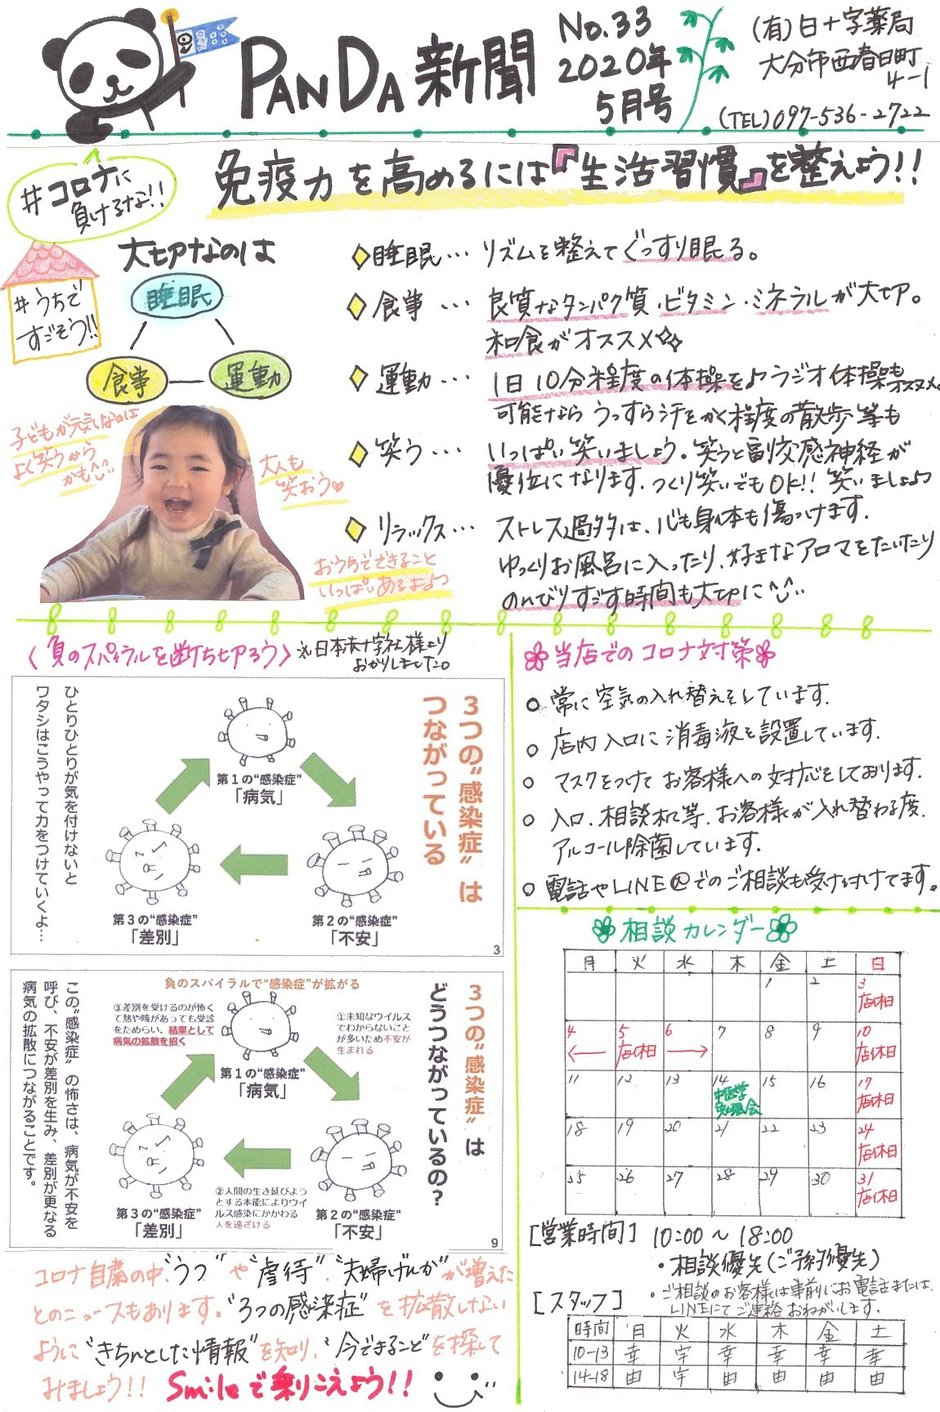 PANDA新聞
No.33
2020年
5月号
(有)日十字薬局
大分市西春日町
4-1
(TEL)097-536-2722
#コロナに
負けるな!!
免疫力を高めるには『生活習慣』を整えよう!!
#うちで
すごそう!!
大切なのは
睡眠
食事
運動
◇睡眠… リズムを整えてぐっすり眠る。
◇食事… 良質なタンパク質・ビタミン・ミネラルが大切。
和食がオススメ
◇運動… 1日10分程度の体操を♪ラジオ体操もオススメ
可能なら うっすら汗をかく程度の散歩等も
◇笑う… いっぱい笑いましょう。笑うと副交感神経が
優位になります。つくり笑いでもOK!! 笑いましょう
◇リラックス… ストレス過多は、心も身体も傷つけます。
ゆっくりお風呂に入ったり、好きなアロマをたいたり
のんびりすごす時間も大切に
子どもが元気なのは
よく笑うから
かも
大人も
笑おう♡
おうちでできること
いっぱいあるよ
〈負のスパイラルを断ち切ろう〉
※日本赤十字社様より
おかりしました。
3つの“感染症”は
つながっている
ひとりひとりが気を付けないと
ワタシはこうやって力をつけていくよ…
第1の“感染症”
「病気」
第3の“感染症”
「差別」
第2の“感染症”
「不安」
3
3つの“感染症”は
どうつながっているの?
負のスパイラルで“感染症”が拡がる
③差別を受けるのが怖く
て熱や咳があっても受診
をためらい、結果として
病気の拡散を招く
①未知なウイルス
でわからないこと
が多いため不安が
生まれる
第1の“感染症”
「病気」
②人間の生き延びよう
とする本能によりウイ
ルス感染にかかわる
人を遠ざける
第3の“感染症”
「差別」
第2の“感染症”
「不安」
この“感染症”の怖さは、病気が不安を
呼び、不安が差別を生み、差別が更なる
病気の拡散につながることです。
9
コロナ自粛の中、“うつ”や“虐待”、“夫婦げんか”が増えた
とのニュースもあります。“3つの感染症”を拡散しない
ように“きちんとした情報”を知り、“今できること”を探して
みましょう!! Smileで乗りこえよう!!
当店でのコロナ対策
○常に空気の入れ替えをしています。
○店内入口に消毒液を設置しています。
○マスクをつけてお客様への対応をしております。
○入口、相談机等、お客様が入れ替わる度、
アルコール除菌しています。
○電話やLINE@でのご相談も受け付けてます。
相談カレンダー
月 火 水 木 金 土 日
1 2 3
店休日
4 5 6 7 8 9 10
店休日 店休日
11 12 13 14 15 16 17
中医学
勉強会 店休日
18 19 20 21 22 23 24
店休日
25 26 27 28 29 30 31
店休日
[営業時間] 10:00~18:00
・相談優先(ご予約優先)
・ご相談のお客様は事前にお電話または、
LINEにてご連絡おねがいします。
[スタッフ]
時間 月 火 水 木 金 土
10-13 幸 宇 幸 幸 幸 幸
14-18 由 宇 由 由 由 由